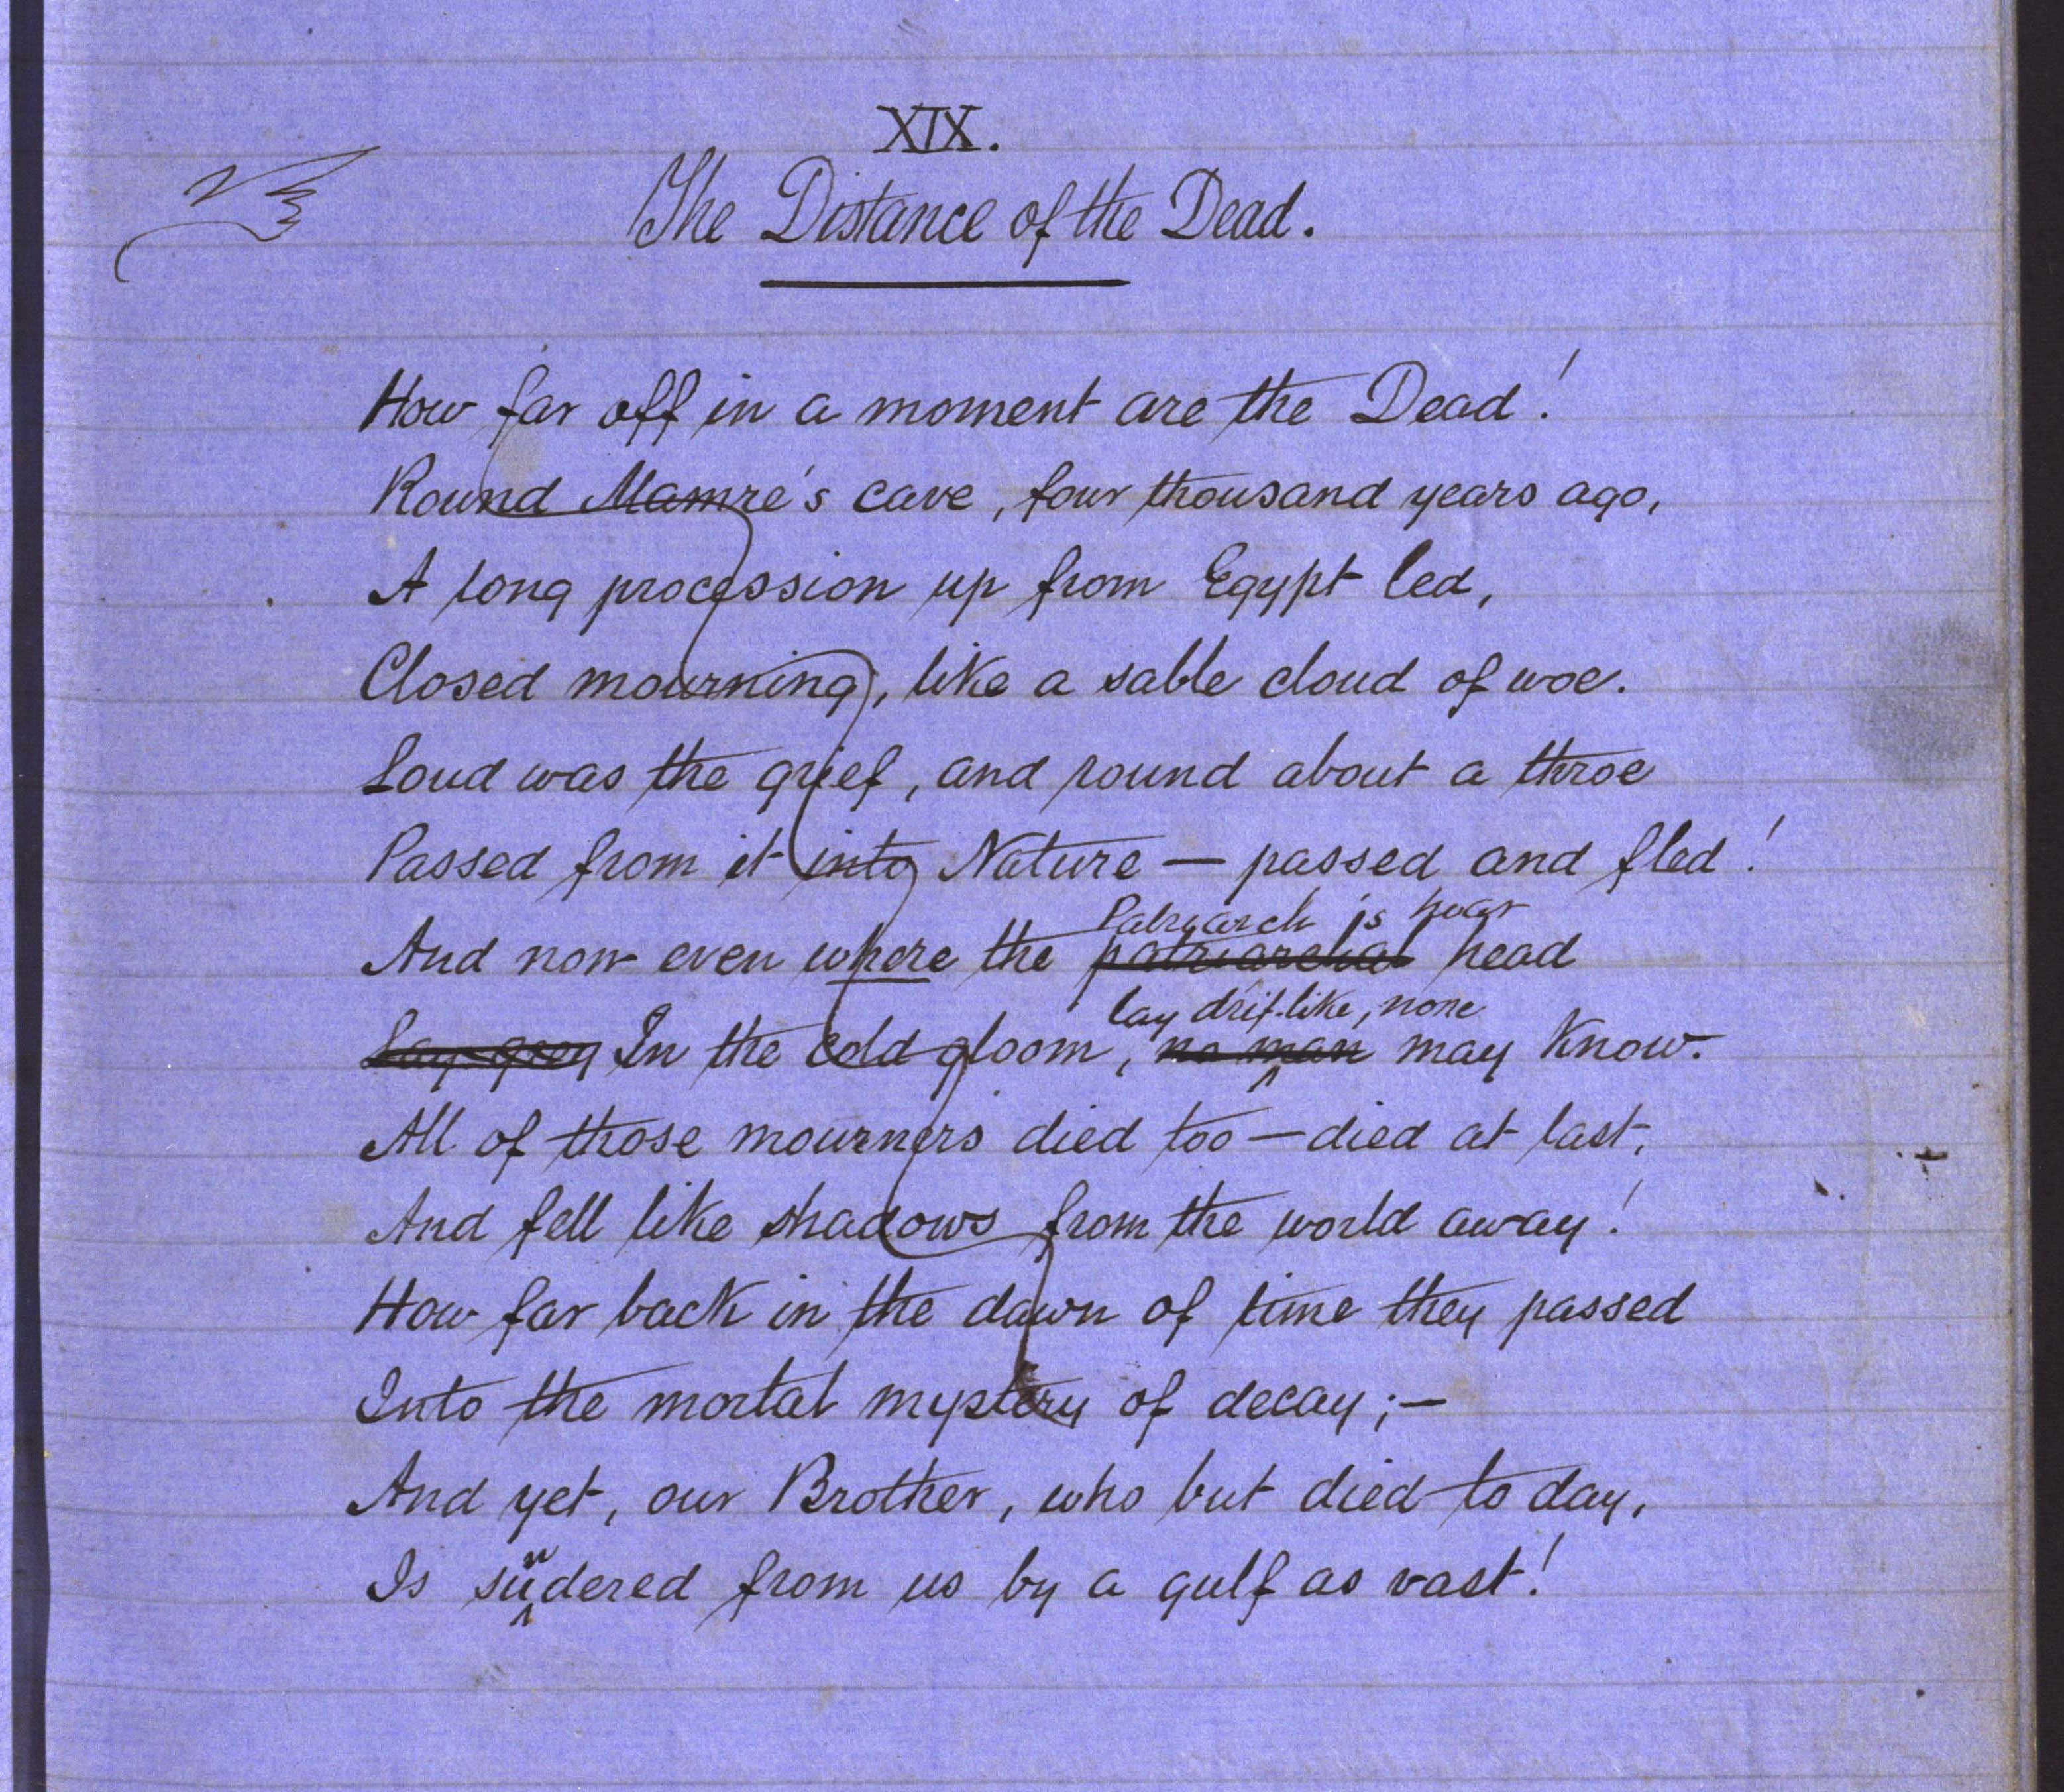 XIX.
The Distance of the Dead.
How far off in a moment are the Dead!
Round Mamre's cave, four thousand years ago,
A long procession up from Egypt led,
Closed mourning, like a sable cloud of woe.
Loud was the grief, and round about a throe
Passed from it into Nature — passed and fled!
Patriarch's hoar
And now even where the patriarchal head
lay drift-like, none
Lay grey In the cold gloom, no man may know.
All of those mourners died too — died at last,
And fell like shadows from the world away!
How far back in the dawn of time they passed
Into the mortal mystery of decay; —
And yet, our Brother, who but died to day,
Is sundered from us by a gulf as vast!